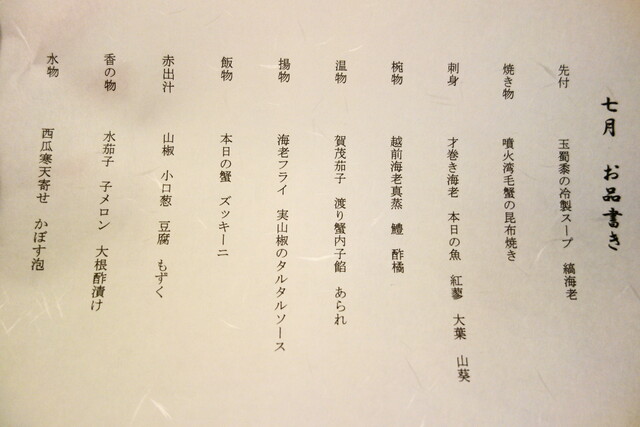 七月 お品書き
先付 玉蜀黍の冷製スープ 縞海老
焼き物 噴火湾毛蟹の昆布焼き
刺身 才巻き海老 本日の魚 紅蓼 大葉 山葵
椀物 越前海老真蒸 鱧 酢橘
温物 賀茂茄子 渡り蟹内子餡 あられ
揚物 海老フライ 実山椒のタルタルソース
飯物 本日の蟹 ズッキーニ
赤出汁 山椒 小口葱 豆腐 もずく
香の物 水茄子 子メロン 大根酢漬け
水物 西瓜寒天寄せ かぼす泡